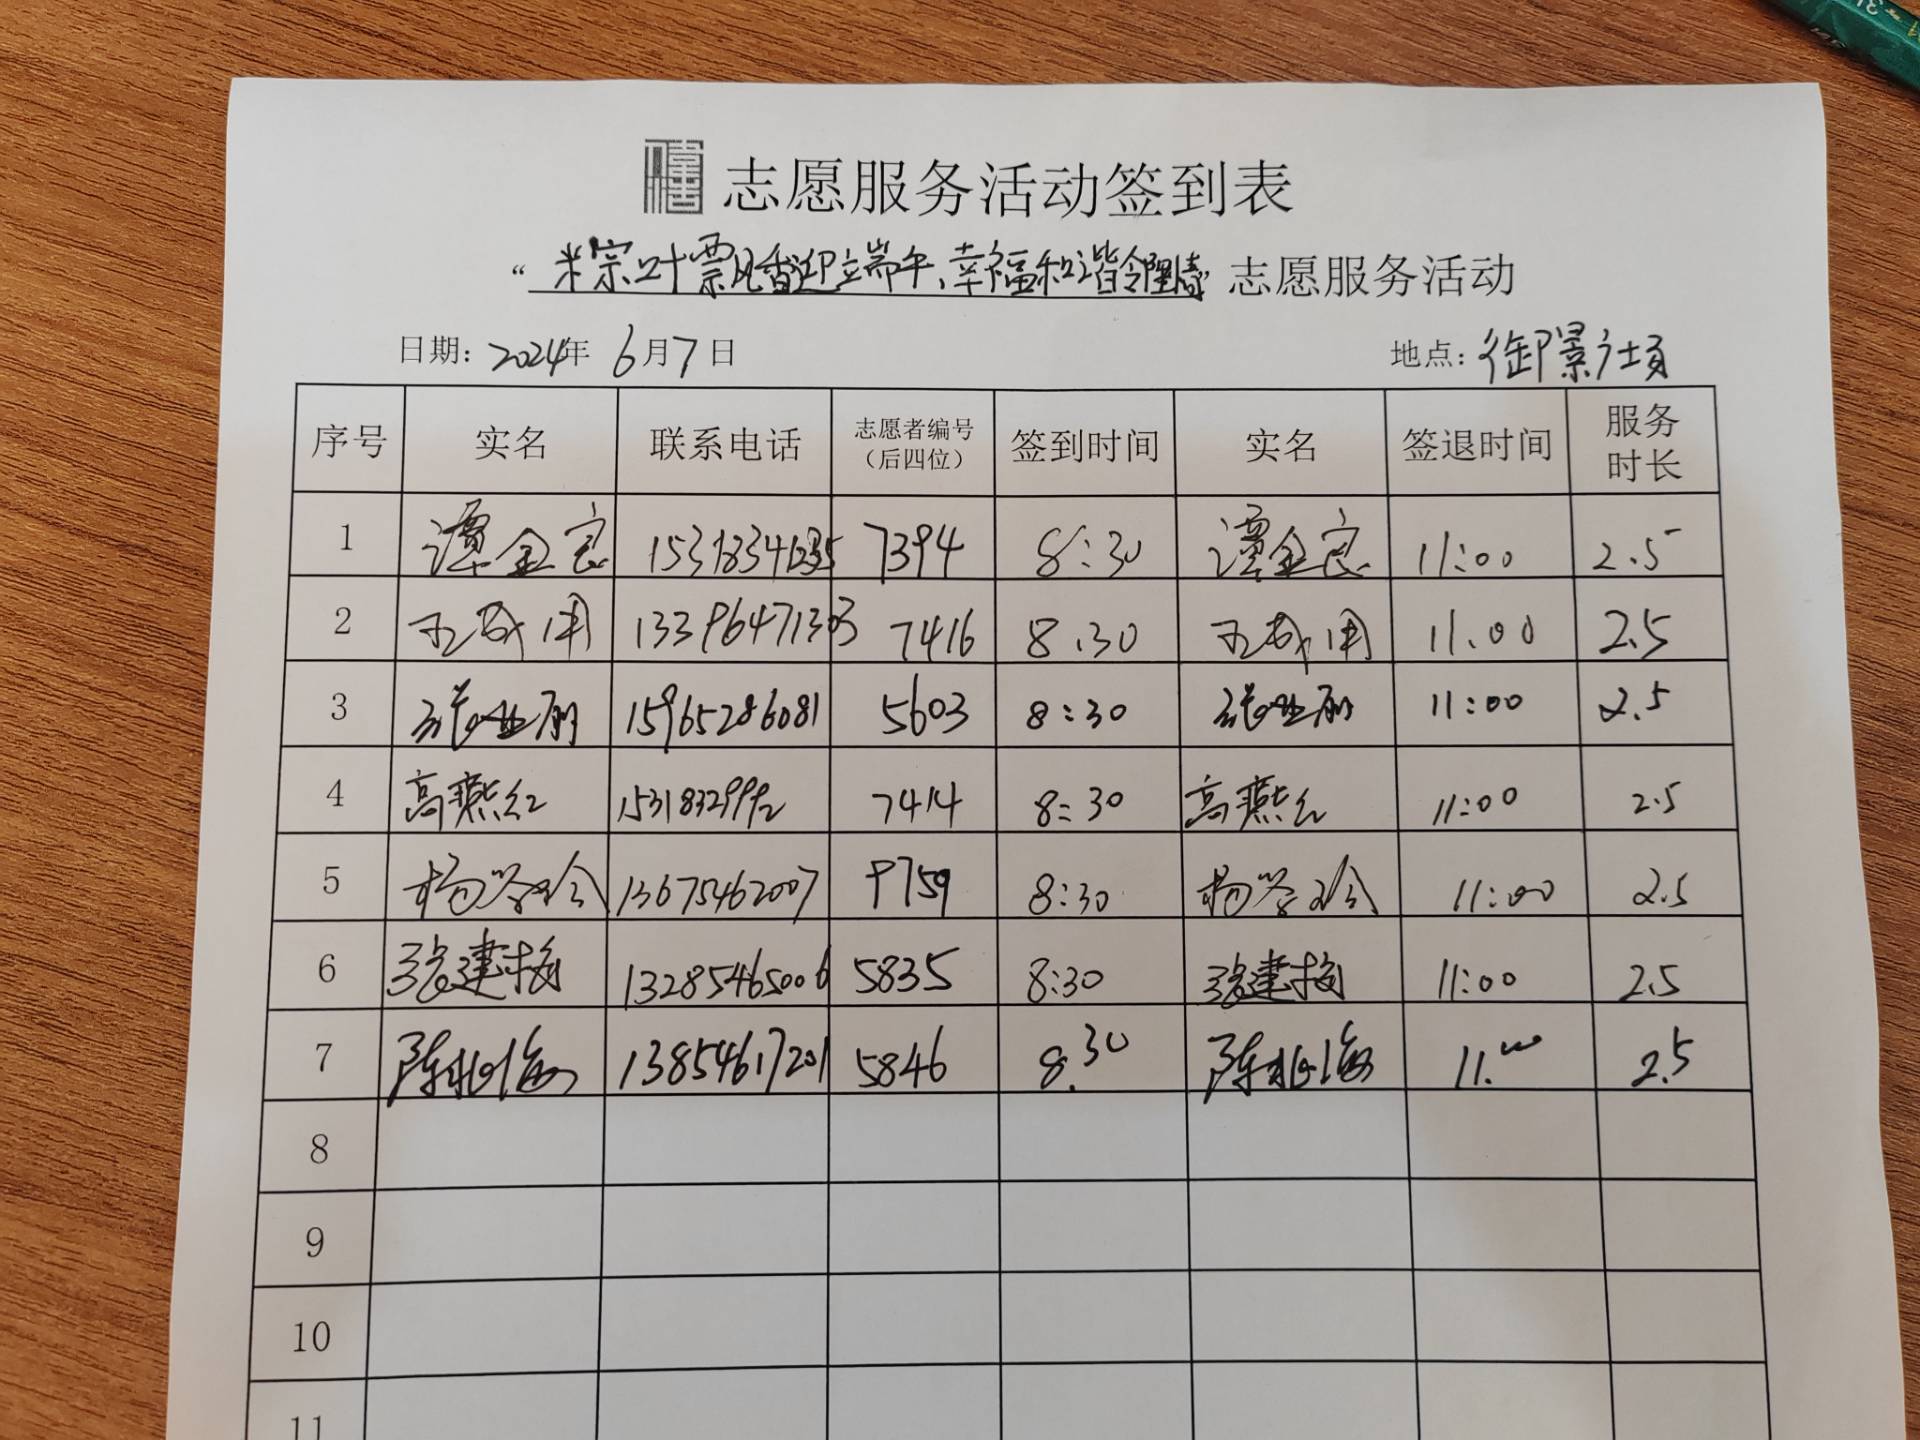 志愿服务活动签到表
“粽叶飘香迎端午、幸福和谐邻里情”志愿服务活动
日期：2024年 6月7日 地点：御景广场
序号 实名 联系电话 志愿者编号（后四位） 签到时间 实名 签退时间 服务时长
1 谭金良 7394 8:30 谭金良 11:00 2.5
2 13396471303 7416 8.30 11.00 2.5
3 15965286081 5603 8:30 11:00 2.5
4 高燕红 15318329992 7414 8:30 高燕红 11:00 2.5
5 13675462007 9759 8:30 11:00 2.5
6 张建梅 13285465006 5835 8:30 张建梅 11:00 2.5
7 陈北海 13854617201 5846 8.30 陈北海 11.00 2.5
8
9
10
11